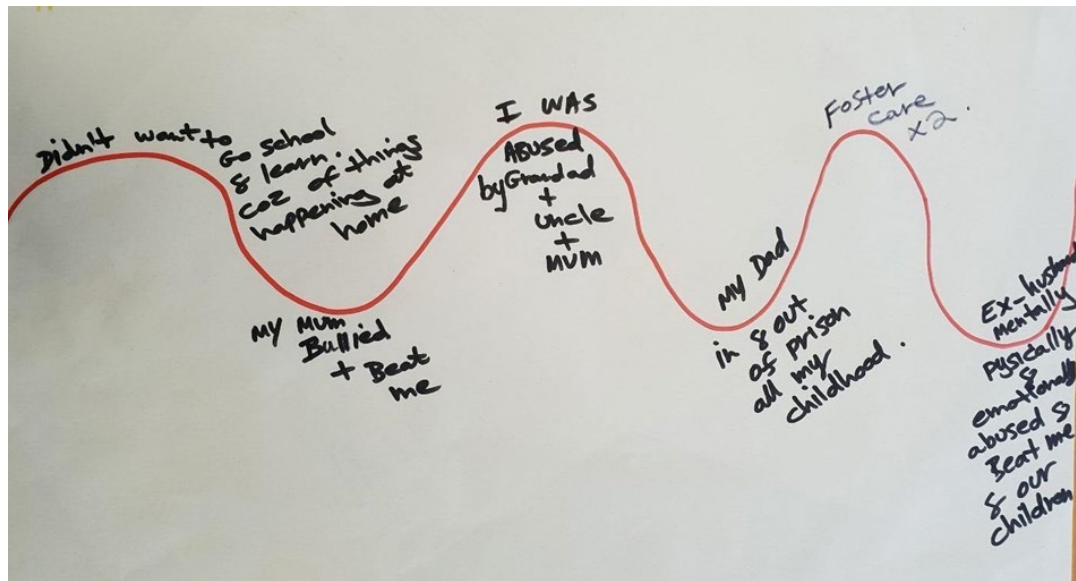 Didn't want to
Go school
& learn.
coz of things
happening at
home
My Mum
Bullied
+ Beat
me
I WAS
ABUSED
by Grandad
+
uncle
+
MUM
My Dad
in & out
of prison
all my
childhood.
Foster
care
x2.
Ex-husband
mentally
pysically
&
emotionally
abused &
Beat me
& our
children